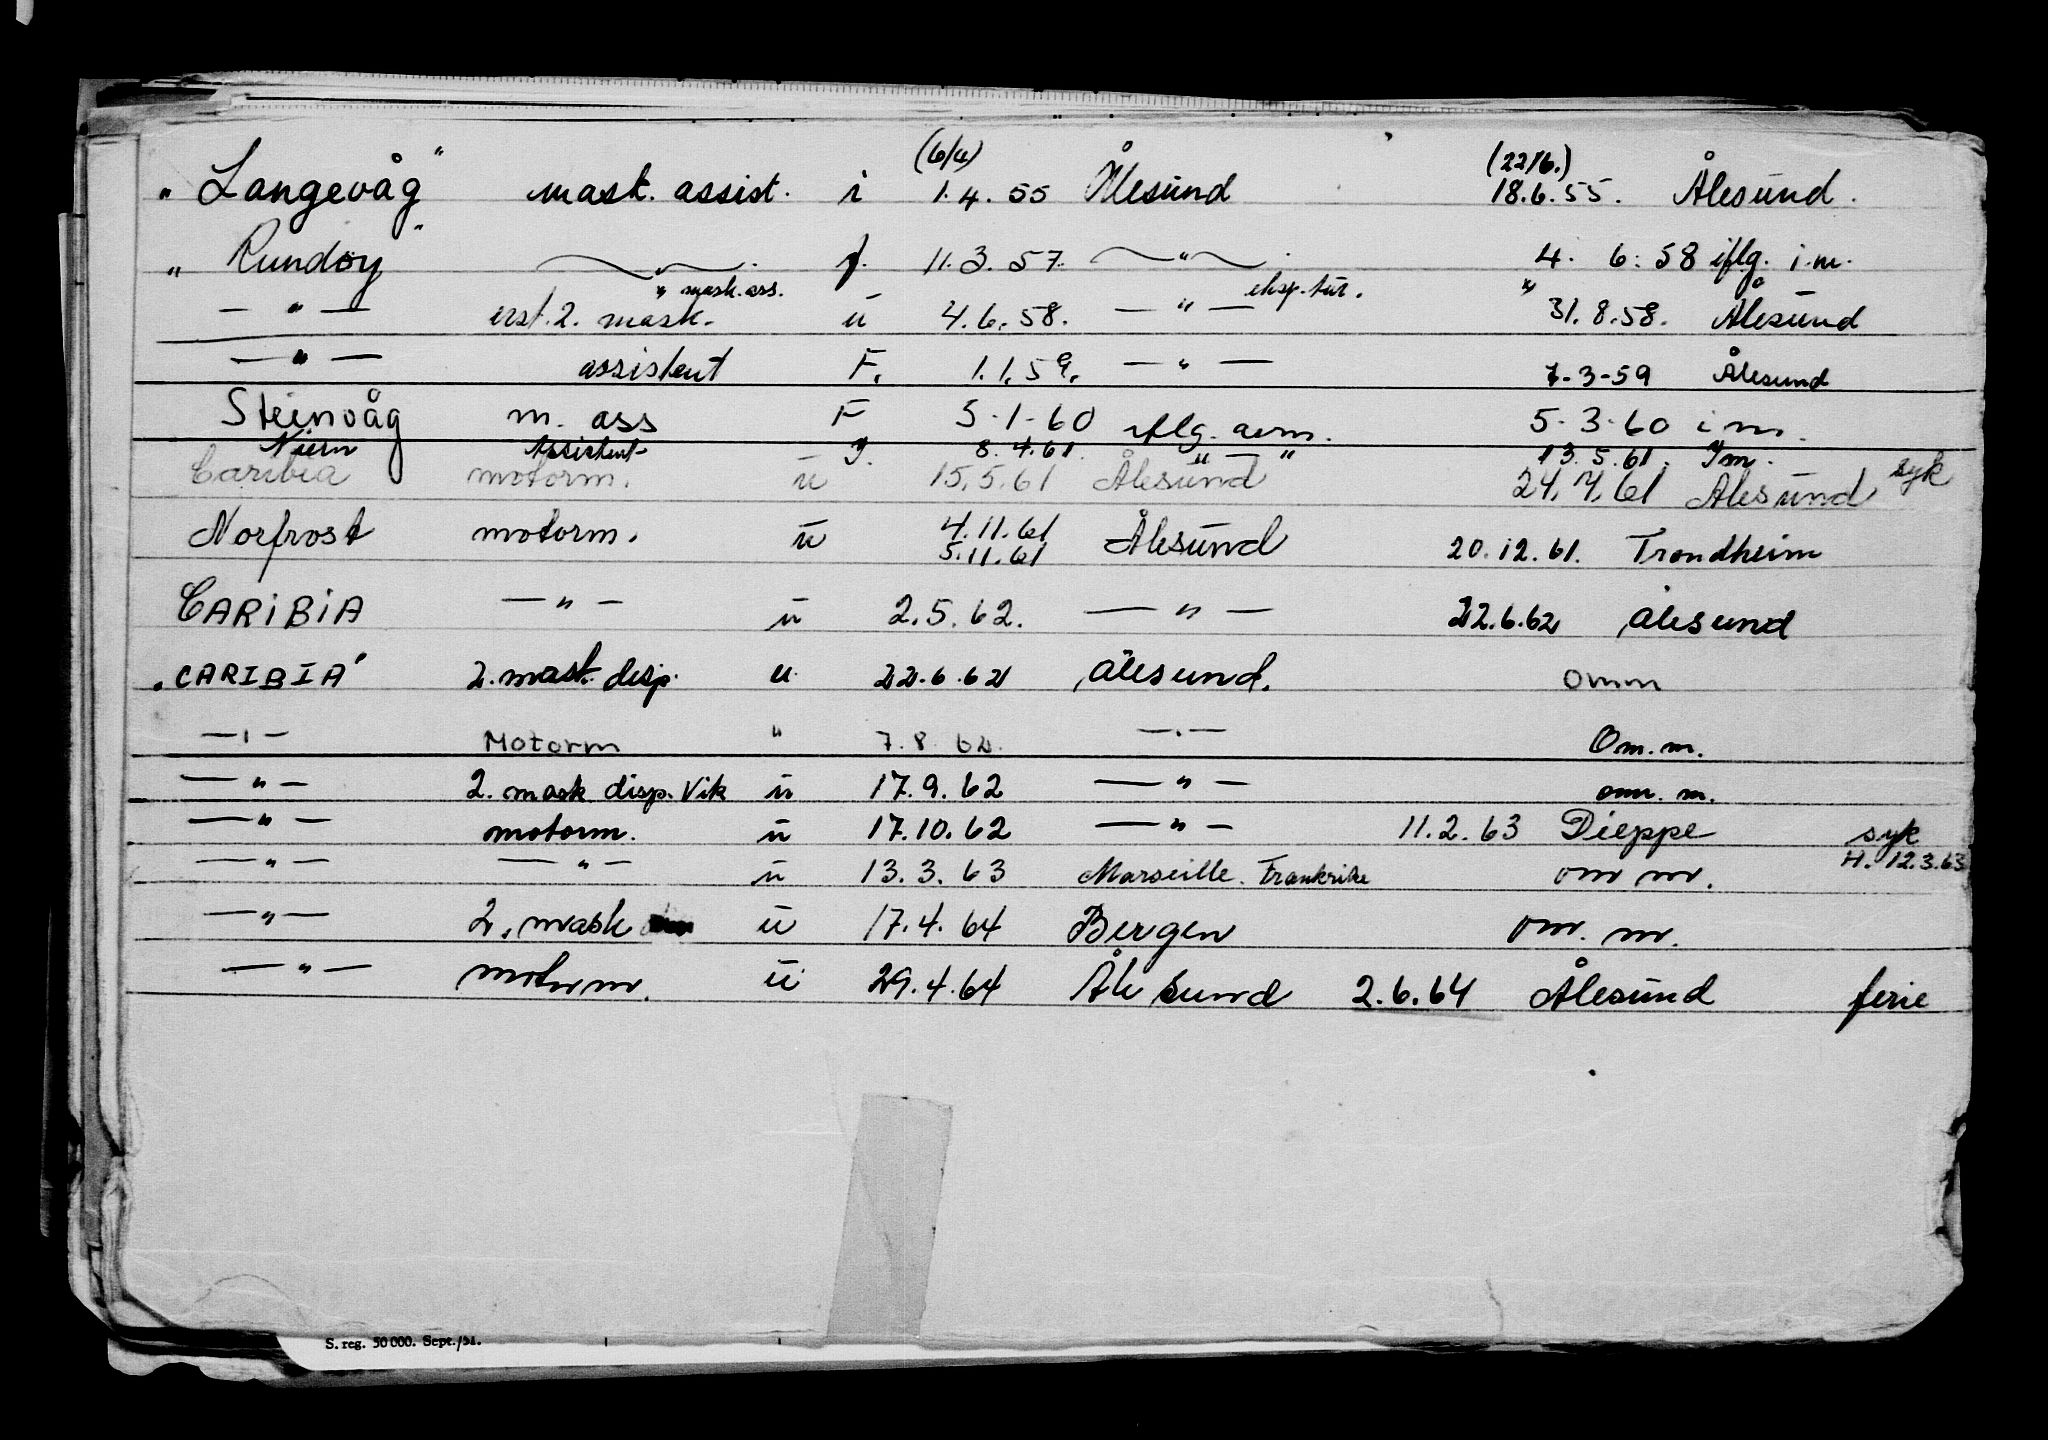 (6/4) (22/6.)
"Langevåg" mask. assist. i 1.4.55 Ålesund 18.6.55. Ålesund.
"Rundöy" — " — f. 11.3.57. — " — 4. 6. 58 iflg. i.m.
" mask. ass. eksp. tur. "
— " — erst. 2. mask. u 4.6.58. — " — 31.8.58. Ålesund
— " — assistent F. 1.1.59. — " — 7-3-59 Ålesund
Steinvåg m. ass F 5-1-60 iflg. aum. 5-3-60 i m.
Assistent 8.4.61. " — " 13.5.61. Im.
Caribia motorm. u 15.5.61 Ålesund 24.7.61 Ålesund syk
Norfrost motorm. u 4.11.61 5.11.61 Ålesund 20.12.61. Trondheim
CARIBIA — " — u 2.5.62. — " — 22.6.62 Ålesund
"CARIBIA" 2. mask. disp. u 22.6.62 Ålesund. omm
— " — Motorm " 7.8.62. — " — Om.m.
— " — 2. mask disp. Vik u 17.9.62 — " — om. m.
— " — motorm. u 17.10.62 — " — 11.2.63 Dieppe syk
H. 12.3.63
— " — — " — u 13.3.63 Marseille. Frankrike om m.
— " — 2. mask u 17.4.64 Bergen om. m.
— " — motorm. u 29.4.64 Ålesund 2.6.64 Ålesund ferie
S. reg. 50 000. Sept./51.